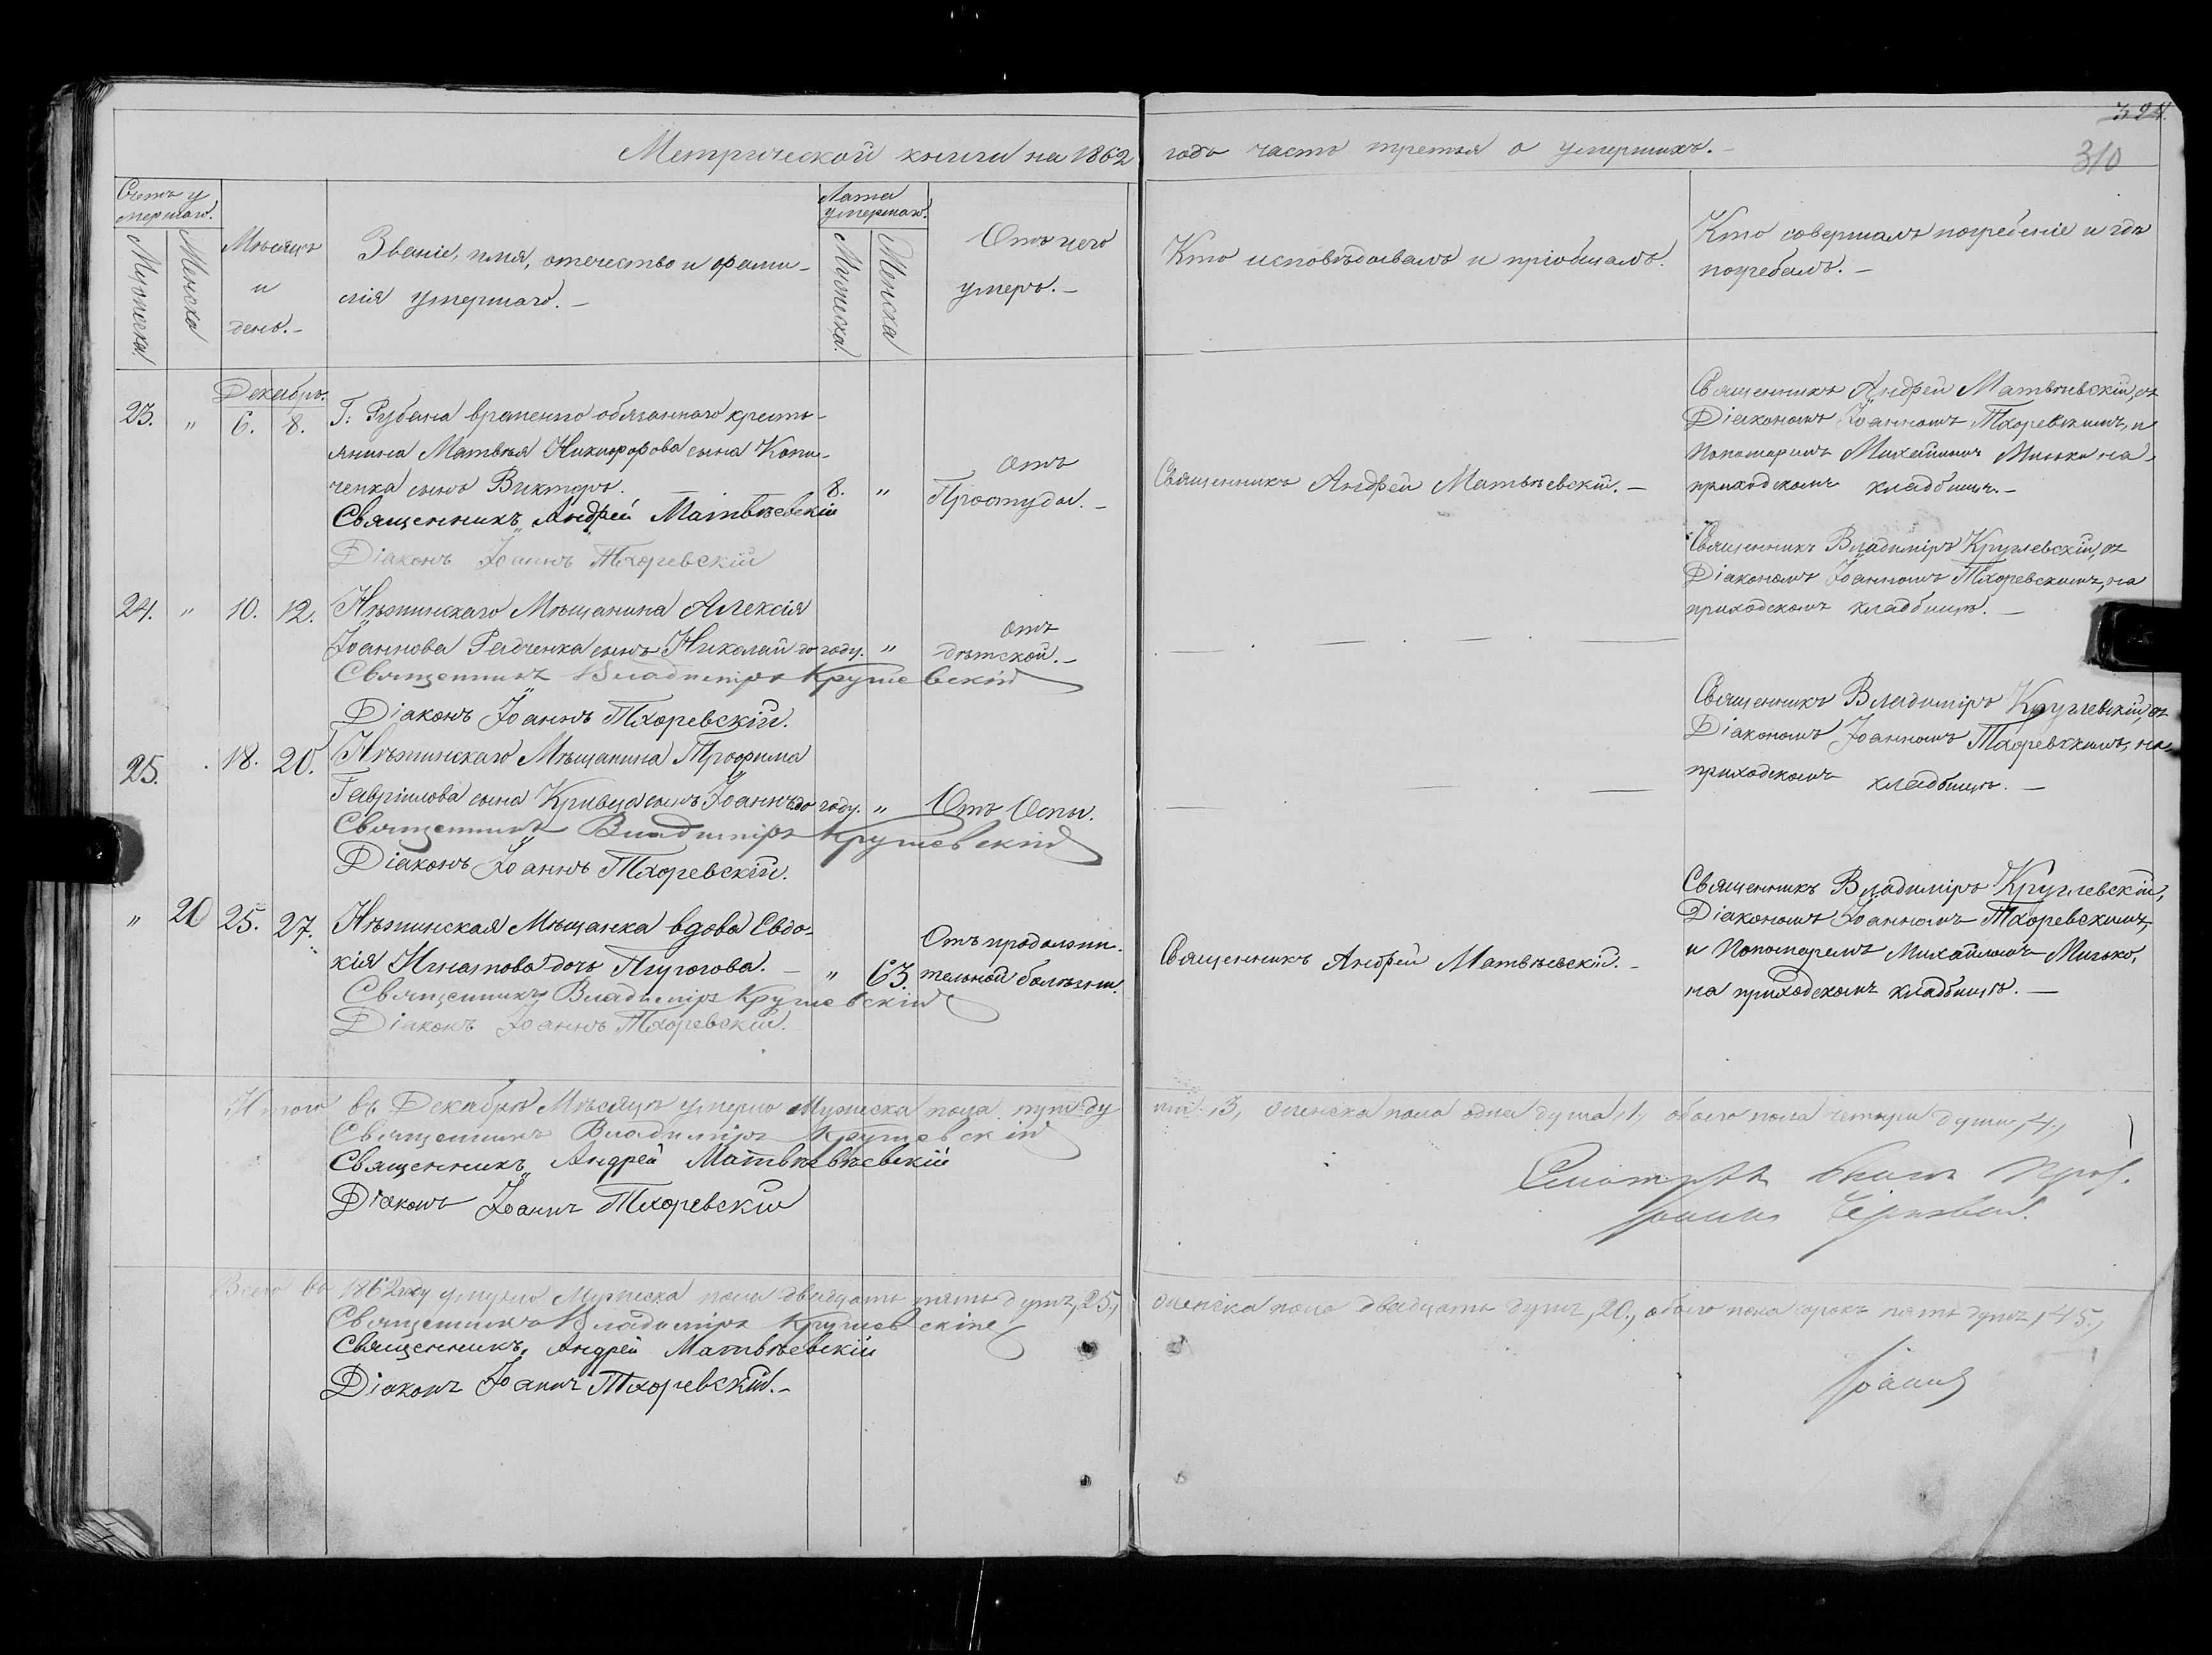 324.
310
Метрической книги на 1862 года часть третья о умершихъ.
Счетъ у
мершаго.
Мужеска.
Женска
Мѣсяцъ
и
день.
Званіе, имя, отечество и фами-
лія умершаго.
Лѣта
умершаго.
Мужеска.
Женска
Отъ чего
умеръ.
Кто исповѣдовалъ и пріобщалъ.
Кто совершалъ погребеніе и гдѣ
погребалъ.
Декабрь.
23. „ 6. 8. Г: Рубана временно обязаннаго кресть-
янина Матвѣя Никифорова сына Копи-
ченка сынъ Викторъ. 8. „
Отъ
Простуды.
Священникъ Андрей Матвѣевскій.
Священникъ Андрей Матвѣевскій, съ
Діакономъ Іоанномъ Тхоревскимъ, и
Пономаремъ Михайломъ Мисько на
приходскомъ кладбищѣ.
Священникъ Андрей Матвѣевскій
Діаконъ Іоаннъ Тхоревскій
24. „ 10. 12. Нѣжинскаго Мѣщанина Алексія
Іоаннова Радченка сынъ Николай до году. „
Отъ
дѣтской.
Священникъ Владиміръ Круглевскій, съ
Діакономъ Іоанномъ Тхоревскимъ, на
приходскомъ кладбищѣ.
Священникъ Владиміръ Круглевскій
Діаконъ Іоаннъ Тхоревскій.
25. 18. 20. Нѣжинскаго Мѣщанина Трофима
Гавріилова сына Кривца сынъ Іоаннъ до году. „ Отъ Оспы.
Священникъ Владиміръ Круглевскій, съ
Діакономъ Іоанномъ Тхоревскимъ, на
приходскомъ кладбищѣ.
Священникъ Владиміръ Круглевскій
Діаконъ Іоаннъ Тхоревскій.
„ 20 25. 27. Нѣжинская Мѣщанка вдова Евдо-
кія Игнатова дочь Плугогова. „ 63.
Отъ продолжи-
тельной болѣзни.
Священникъ Андрей Матвѣевскій.
Священникъ Владиміръ Круглевскій,
Діакономъ Іоанномъ Тхоревскимъ,
и Пономаремъ Михайломъ Мисько,
на приходскомъ кладбищѣ.
Священникъ Владиміръ Круглевскій
Діаконъ Іоаннъ Тхоревскій.
Итого въ Декабрѣ Мѣсяцѣ умерло Мужеска пола ду ,3, женска пола одна душа ,1, обоего пола четыре души ,4,
Священникъ Владиміръ Круглевскій
Священникъ Андрей Матвѣевѣевскій
Діаконъ Іоаннъ Тхоревскій
Іоаннъ
Всего въ 1862 году умерло Мужеска пола двадцать пять душъ ,25., женска пола двадцать душъ ,20., обоего пола сорокъ пять душъ ,45.,
Священникъ Владиміръ Круглевскій
Священникъ Андрей Матвѣевскій
Діаконъ Іоаннъ Тхоревскій.
Іоаннъ